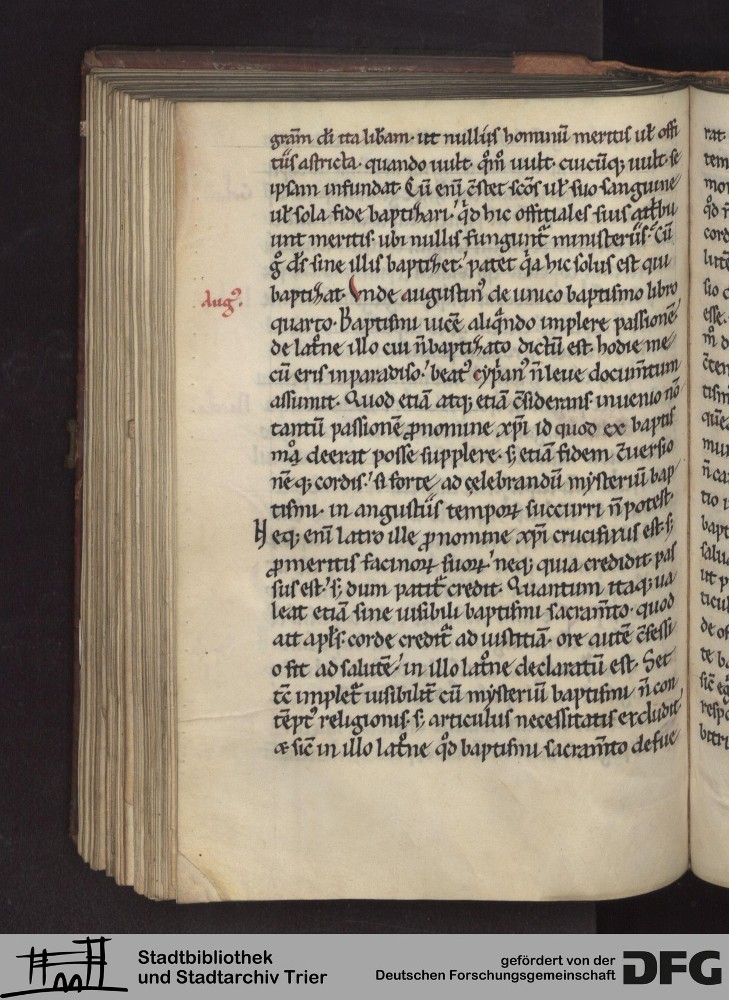 grām di ita liƀam · ut nullius hominū meritis ul̄ offi
tiis astricta · quando uult · q̄m̄ uult · cuicūq; uult · se
ipsam infundat · Cū enī c̄stet sc̄os ul̄ suo sanguine
ul̄ sola fide baptizari · qd hic offitiales suis attbu
unt meritis · ubi nullis fungunt̄ ministeriis · Cū
g̊ d̄s sine illis baptizet · patet q̓a hic solus est qui
baptizat · Vnde augustin᷒ de unico baptismo libro
Aug᷒.
quarto · Baptismi uicē aliqn̄do implere passionē
de latn̄e illo cui n̄ baptizato dictū est · hodie me
cū eris in paradiso · beat᷒ cyp̓an᷒ n̄ leue documt̄um
assumit · Quod etiā atq; etiā c̄siderans inuenio nō
tantū passionē ꝓ nomine xp̄i id quod ex baptis
mo deerat posse supplere · s; etiā fidem c̄uersio
nēq; cordis · si forte ad celebrandū mysteriū bap
tismi · in angustiis tempoꝝ succurri n̄ potest ·
Neq; enī latro ille ꝓ nomine xp̄i crucifixus est · s;
ꝓ meritis facinoꝝ suoꝝ · neq; quia credidit pas
sus est · s; dum patit̄ credit · Quantum itaq; ua
leat etiā sine uisibili baptismi sacram̄to · quod
ait apl̄s · corde credit̄ ad iustitiā · ore autē c̄fessi
o fit ad salutē · in illo latn̄e declaratū est · Set
tc̄ implet̄ uisibilit̄ cū mysteriū baptismi n̄ con
tēpt᷒ religionis · s; articulus necessitatis excludit ·
& sic̄ in illo latn̄e qd baptismi sacram̄to defue
rat
tem
mor
cord
lute
sio c
esse ·
tism
mur
tio
bapt
salu
ut p
ticul
de of
te ba
resp
bitri
Stadtbibliothek
und Stadtarchiv Trier
gefördert von der
Deutschen Forschungsgemeinschaft
DFG